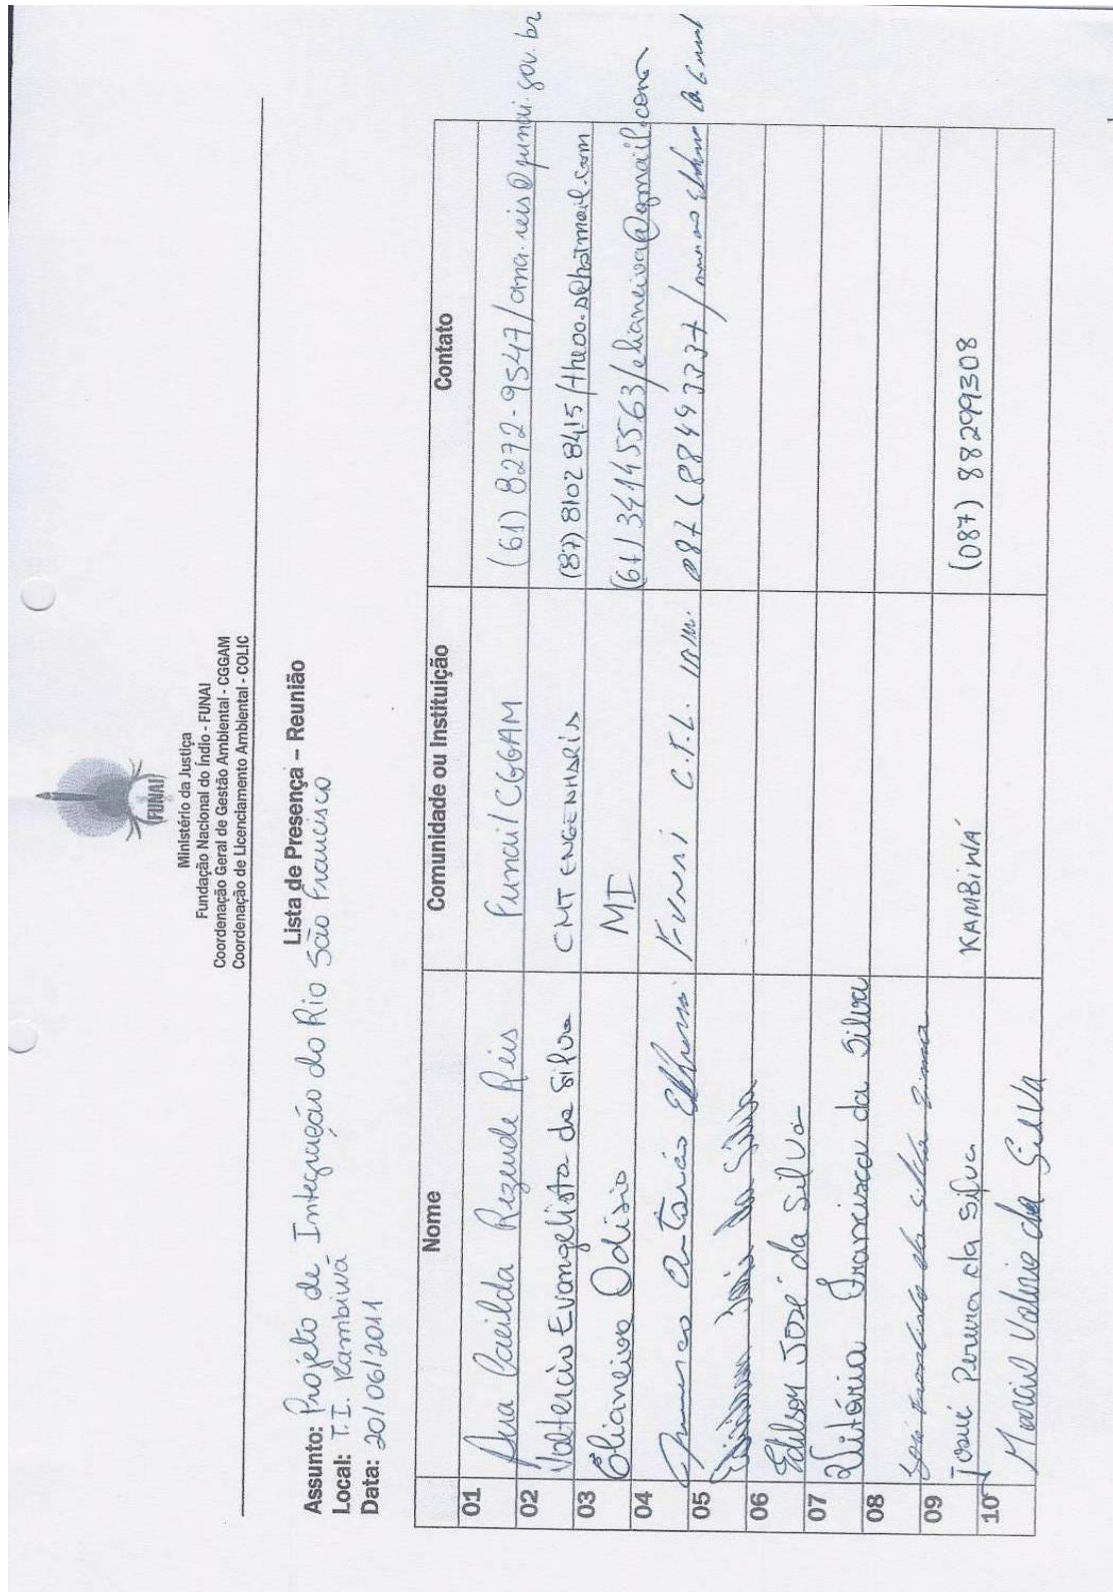 FUNAI
Ministério da Justiça
Fundação Nacional do Índio - FUNAI
Coordenação Geral de Gestão Ambiental - CGGAM
Coordenação de Licenciamento Ambiental - COLIC
Lista de Presença – Reunião
Assunto: Projeto de Integração do Rio São Francisco
Local: T.I. Kambiwá
Data: 20/06/2011
Nome Comunidade ou Instituição Contato
01 Ana Cacilda Rezende Reis Funai/CGGAM (61) 8272-9547/ana.reis@funai.gov.br
02 Valtercio Evangelista da Silva CMT ENGENHARIA (87) 8102 8415/theoo.s@hotmail.com
03 Elianeiva Odisio MI (61) 34145563/elianeiva@gmail.com
04 Antonio FUNAI C.T.L.
05 da Silva
06 Edilson José da Silva
07 Vitória Francisca da Silva
08 da Silva
09 Josué Pereira da Silva KAMBIWÁ (087) 88299308
10 Marcio Valerio da Silva